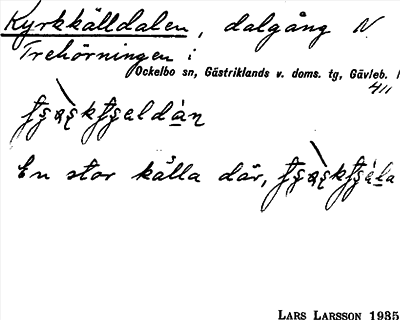 Kyrkkälldalen, dalgång N
Trehörningen i
Ockelbo sn, Gästriklands v. doms. tg, Gävleb. l
4/11
En stor källa där,
LARS LARSSON 1935